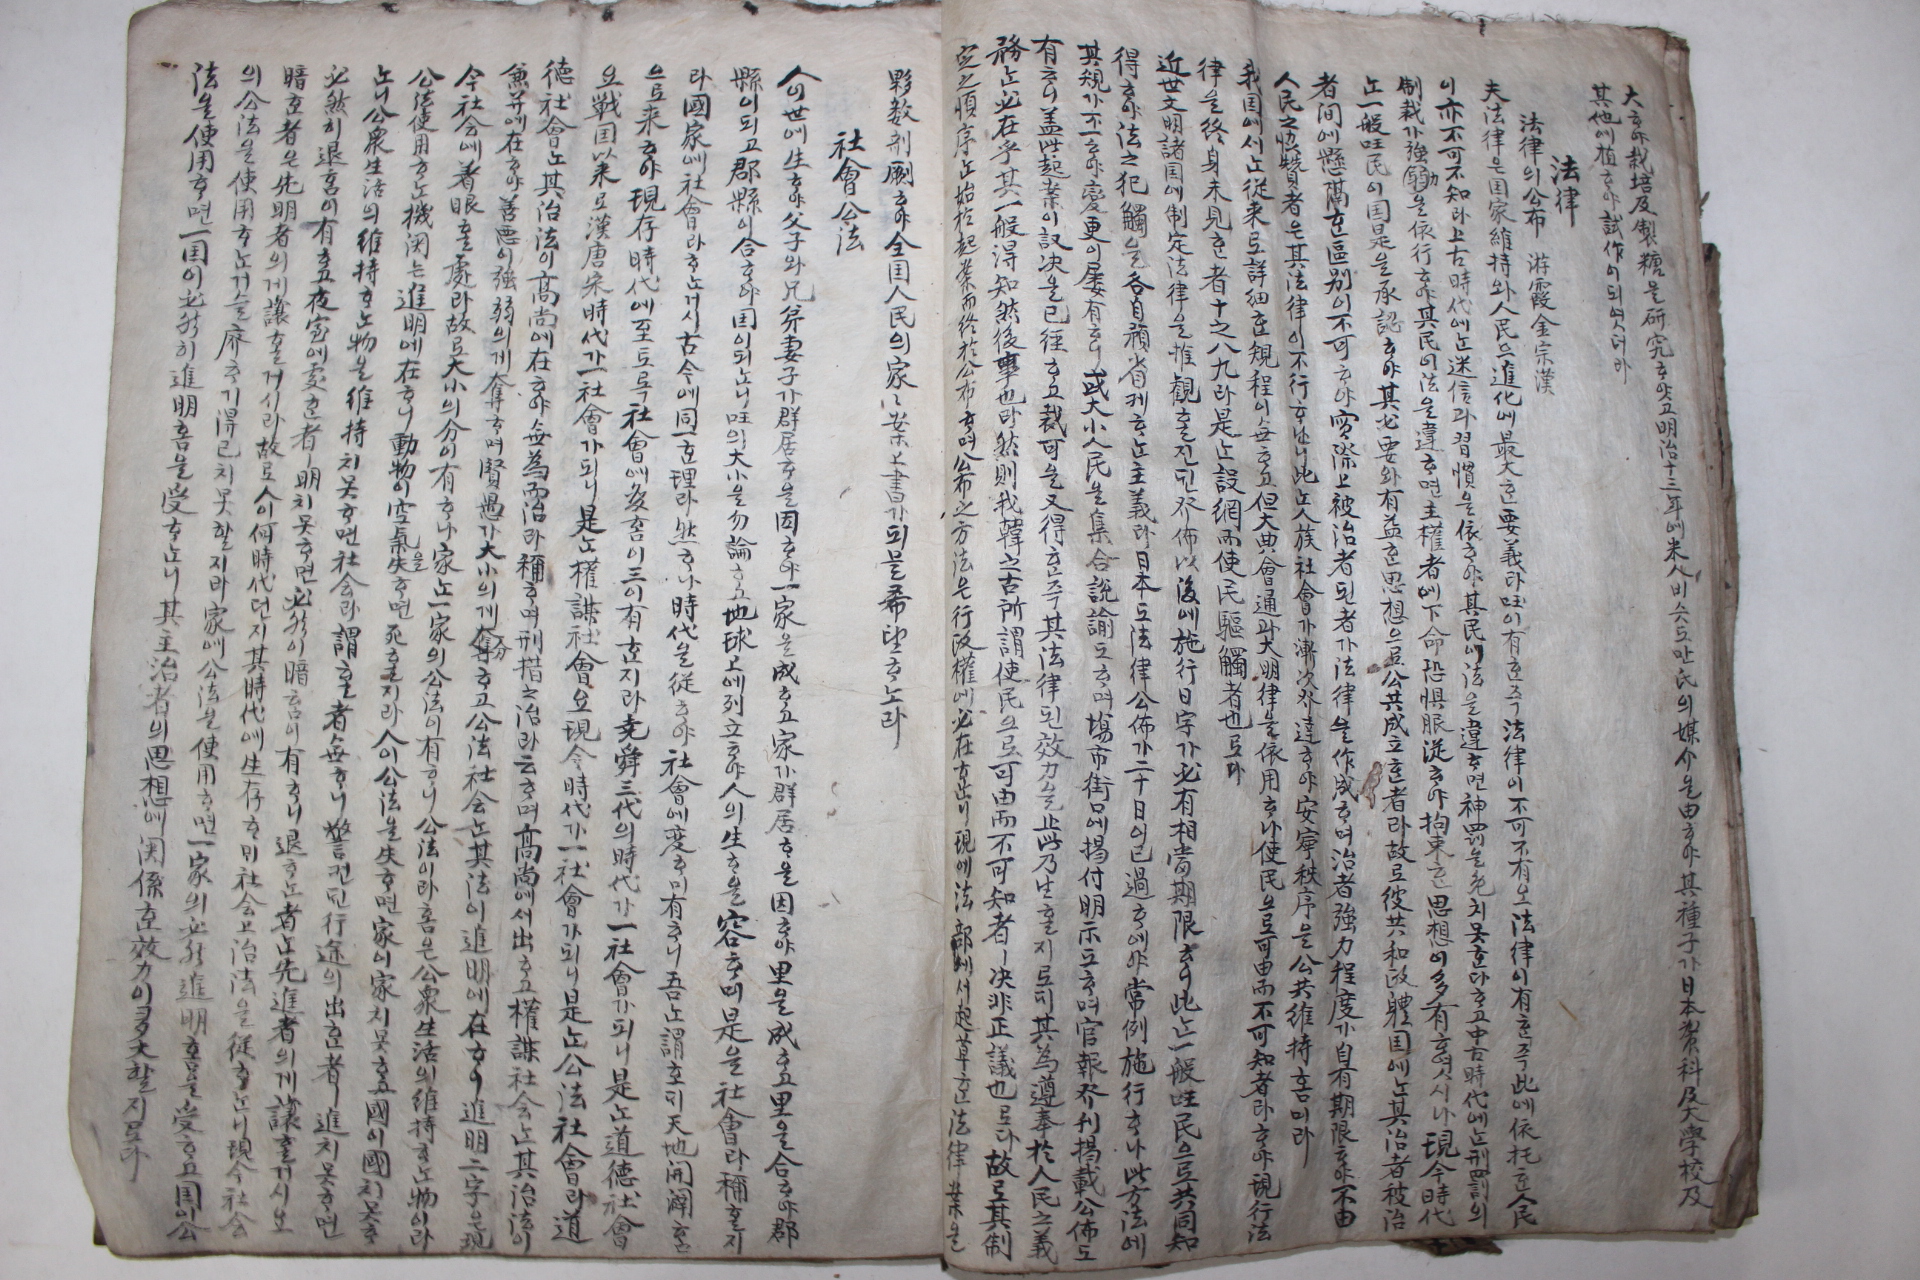 大ᄒᆞ야栽培及製糖을硏究ᄒᆞ얏고明治十三年에米人비스도만民의媒介을由ᄒᆞ야其種子가日本農科及大學校及
其他에植ᄒᆞ야試作이되엿더라
法律
法律의公布 游霞金宗漢
夫法律은国家維持와人民으進化에最大ᄒᆞᆫ要義라旺이有ᄒᆞᆫ즉法律이不可不有오法律이有ᄒᆞᆫ즉此에依托ᄒᆞᆫ人民
이亦不可不知라上古時代에ᄂᆞᆫ迷信과習慣을依ᄒᆞ야其民에法을違ᄒᆞ면神罰을免치못ᄒᆞᆫ다ᄒᆞ고中古時代에ᄂᆞᆫ刑罰의
制裁가強弱을依行ᄒᆞ야其民이法을違ᄒᆞ면主權者에下命恐惧服從ᄒᆞ야拘束ᄒᆞᆫ思想이多有ᄒᆞ엿시나現今時代
ᄂᆞᆫ一般旺民이国是을承認ᄒᆞ야其必要와有益ᄒᆞᆫ思想으로公共成立ᄒᆞᆫ者라故로彼共和政體国에ᄂᆞᆫ其治者被治
者间에懸隔ᄒᆞᆫ區别이不可ᄒᆞ야實際上被治者된者가法律을作成ᄒᆞ며治者強力程度가自有期限ᄒᆞ야不由
人民之快贊者은其法律이不行ᄒᆞᄂᆞ니此ᄂᆞᆫ人族社會가漸次發達ᄒᆞ야安寧秩序을公共維持홈미라
我国에서ᄂᆞᆫ從来로詳細ᄒᆞᆫ規程이無ᄒᆞ고但大典會通과大明律을依用ᄒᆞ나使民으로可由而不可知者라ᄒᆞ야現行法
律을終身未見ᄒᆞᆫ者十之八九라是ᄂᆞᆫ設網而使民驅觸者也로다
近世文明諸国에制定法律을推觀ᄒᆞᆯ진ᄃᆡ發佈以後에施行日字가必有相當期限ᄒᆞ니此ᄂᆞᆫ一般旺民으로共同知
得ᄒᆞ야法之犯觸을各自顧省케ᄒᆞᄂᆞᆫ主義라日本도法律公佈가二十日이已過ᄒᆞ에야常例施行ᄒᆞ나此方法에
其規가不一ᄒᆞ야變更이屡有ᄒᆞ니或大小人民을集合説諭도ᄒᆞ며塲市街口에揭付明示도ᄒᆞ며官報發刊揭載公佈도
有ᄒᆞ니盖此起案이議决을已經ᄒᆞ고裁可을又得ᄒᆞᆫ즉其法律된效力을止此乃生ᄒᆞᆯ지로ᄃᆡ其為遵奉於人民之義
務ᄂᆞᆫ必在乎其一般得知然後事也라然則我韓之古所謂使民으로可由而不可知者ㅣ决非正議也로다故로其制
定之順序ᄂᆞᆫ始於起案而終於公布ᄒᆞ며公布之方法은行政權에必在ᄒᆞ니現에法部에서起草ᄒᆞᆫ法律案을
夥數刊刷ᄒᆞ야全国人民의家〻案上書가되믈希望ᄒᆞ노라
社會公法
人이世에生ᄒᆞ야父子와兄弟妻子가群居ᄒᆞ을因ᄒᆞ야一家을成ᄒᆞ고家가群居ᄒᆞ을因ᄒᆞ야里을成ᄒᆞ고里을合ᄒᆞ야郡
縣이되고郡縣이合ᄒᆞ야国이되ᄂᆞ니旺의大小을勿論ᄒᆞ고地球上에列立ᄒᆞ야人의生ᄒᆞ을容ᄒᆞ며是을社會라稱ᄒᆞᆯ지
라國家에社會라ᄒᆞᄂᆞᆫ거시古今에同一ᄒᆞᆫ理라然ᄒᆞ나時代을從ᄒᆞ야社會에変ᄒᆞ미有ᄒᆞ니吾ᄂᆞᆫ謂호ᄃᆡ天地開闢홈
으로来ᄒᆞ야現存時代에至토록社會에変홈이三이有ᄒᆞᆫ지라堯舜三代의時代가一社會가되니是ᄂᆞᆫ道德社會
요戰国以来로漢唐宋時代가一社會가되니是ᄂᆞᆫ權謀社會요現今時代가一社會가되니是ᄂᆞᆫ公法社會라道
德社會ᄂᆞᆫ其治法이高尚에在ᄒᆞ야無為而治라稱ᄒᆞ며刑措之治라云ᄒᆞ며高尚에서出ᄒᆞ고權謀社会ᄂᆞᆫ其治法이
兼并에在ᄒᆞ야善惡이強弱의게奪ᄒᆞ며賢愚가大小의게分奪ᄒᆞ고公法社会ᄂᆞᆫ其法이進明에在ᄒᆞ니進明二字은現
今社会에着眼ᄒᆞᆯ處라故로大小의分이有ᄒᆞ나家ᄂᆞᆫ一家의公法이有ᄒᆞ니公法이라홈은公衆生活의維持ᄒᆞᄂᆞᆫ物이라
公法使用ᄒᆞᄂᆞᆫ機関는進明에在ᄒᆞ니動物이空氣을失ᄒᆞ면死ᄒᆞᆯ지라人이公法을失ᄒᆞ면家이家치못ᄒᆞ고國이國치못ᄒᆞ
ᄂᆞ니公衆生活의維持ᄒᆞᄂᆞᆫ物을維持치못ᄒᆞ면社会라謂ᄒᆞᆯ者無ᄒᆞ니譬컨ᄃᆡ行途의出ᄒᆞᆫ者ㅣ進치못ᄒᆞ면
必然히退홈이有ᄒᆞ고夜室에處ᄒᆞᆫ者ㅣ明치못ᄒᆞ면必然이暗홈이有ᄒᆞ니退ᄒᆞᄂᆞᆫ者ᄂᆞᆫ先進者의게讓ᄒᆞᆯ거시오
暗ᄒᆞᆫ者은先明者의게讓ᄒᆞᆯ거시라故로人이何時代던지其時代에生存ᄒᆞ미社会上治法을從ᄒᆞᄂᆞ니現今社会
의公法을使用ᄒᆞᄂᆞᆫ거슬廢ᄒᆞ기得已치못할지라家에公法을使用ᄒᆞ면一家의必然進明홈을受ᄒᆞ고国이公
法을使用ᄒᆞ면一国이必然히進明홈을受ᄒᆞᄂᆞ니其主治者의思想에関係ᄒᆞᆫ效力이多大할지로다